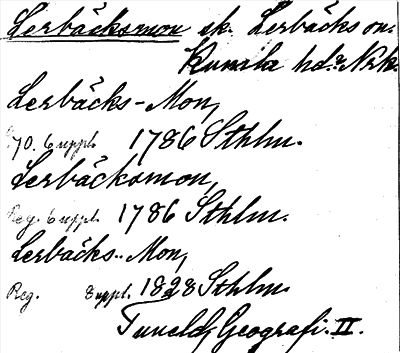 Lerbäcksmon sk. Lerbäcks sn.
Kumla hd: Nrk.
Lerbäcks-Mon,
70. 6 uppl. 1786 Sthlm.
Lerbäcksmon,
Reg. 6 uppl. 1786 Sthlm.
Lerbäcks-Mon,
Reg. 8 uppl. 1828 Sthlm.
Tunelds Geografi. II.